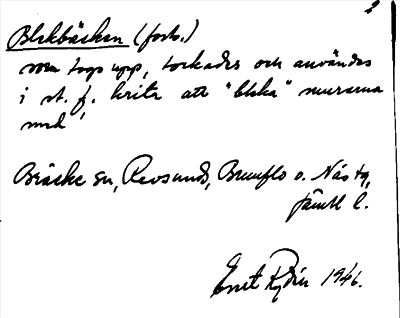 2
Blekbäcken (forts.)
som togs upp, torkades och användes
i st. f. krita att "bleka" murarna
med
Bräcke sn, Revsunds, Brunflo o. Näs tg,
Jämtl l.
1946.